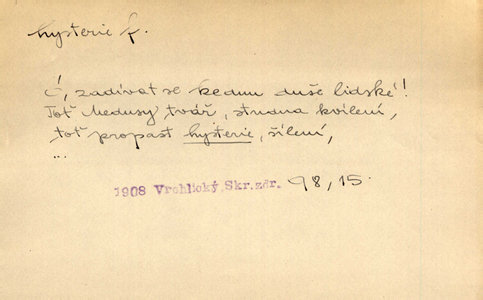 hysterie f.
Ó, zadívat se ke dnu duše lidské!
Toť Medusy tvář, studna kvílení,
toť propast hysterie, šílení,
...
1908 Vrchlický, Skr.zdr. 98,15.